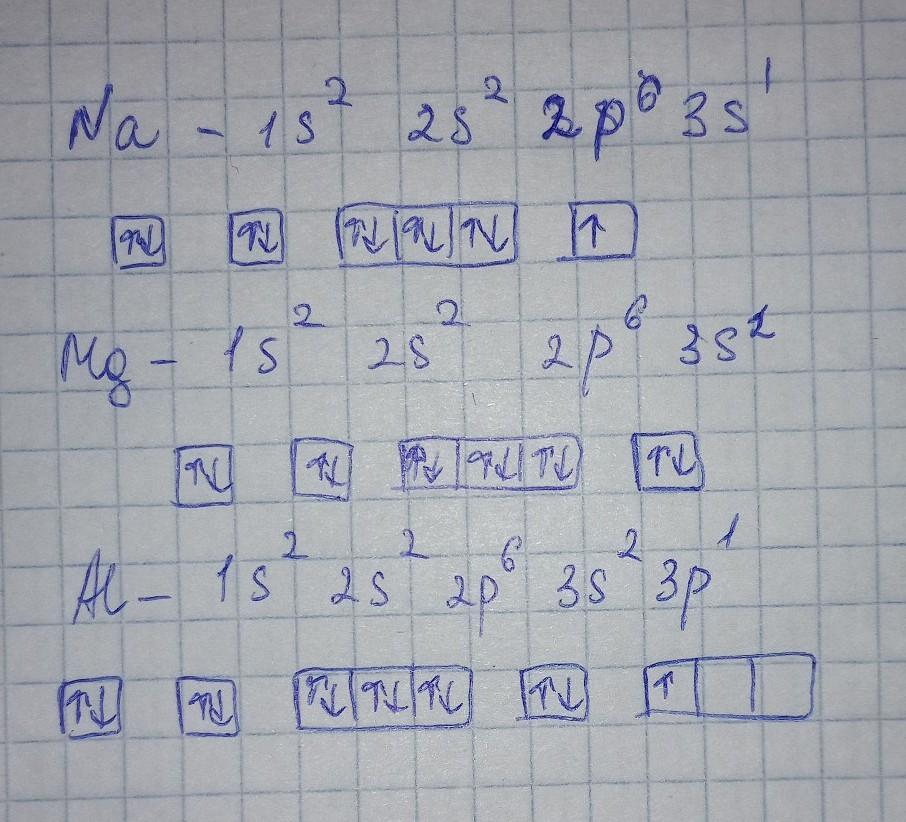 Na - 1s² 2s² 2p⁶ 3s¹
↑↓ ↑↓ ↑↓ ↑↓ ↑↓ ↑
Mg - 1s² 2s² 2p⁶ 3s²
↑↓ ↑↓ ↑↓ ↑↓ ↑↓ ↑↓
Al - 1s² 2s² 2p⁶ 3s² 3p¹
↑↓ ↑↓ ↑↓ ↑↓ ↑↓ ↑↓ ↑